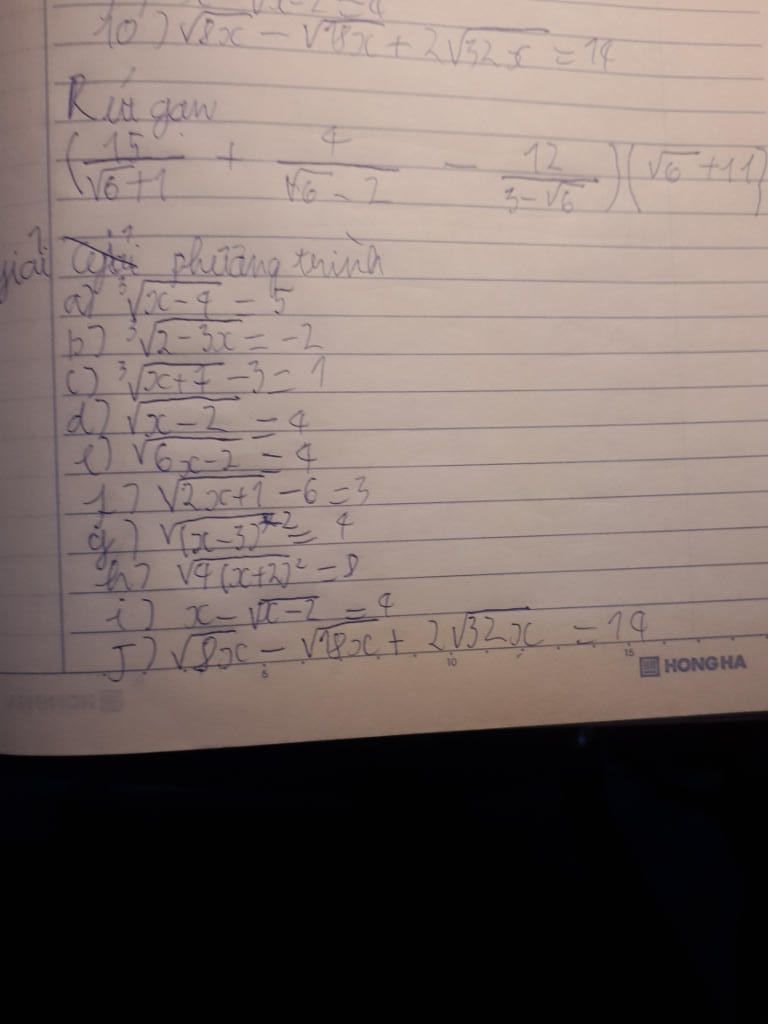 √x-2 = 4
10) √8x - √18x + 2√32x = 14
Rút gọn
(15/(√6+1) + 4/(√6-2) - 12/(3-√6))(√6+11)
giải phương trình
a) ³√x-4 = 5
b) ³√2-3x = -2
c) ³√x+7 -3 = 1
d) √x-2 = 4
e) √6x-2 = 4
f) √2x+1 -6 = 3
g) √(x-3)² = 4
h) √4(x+2)² = 8
i) x - √x-2 = 4
J) √8x - √18x + 2√32x = 14
5 10 15
HONG HA